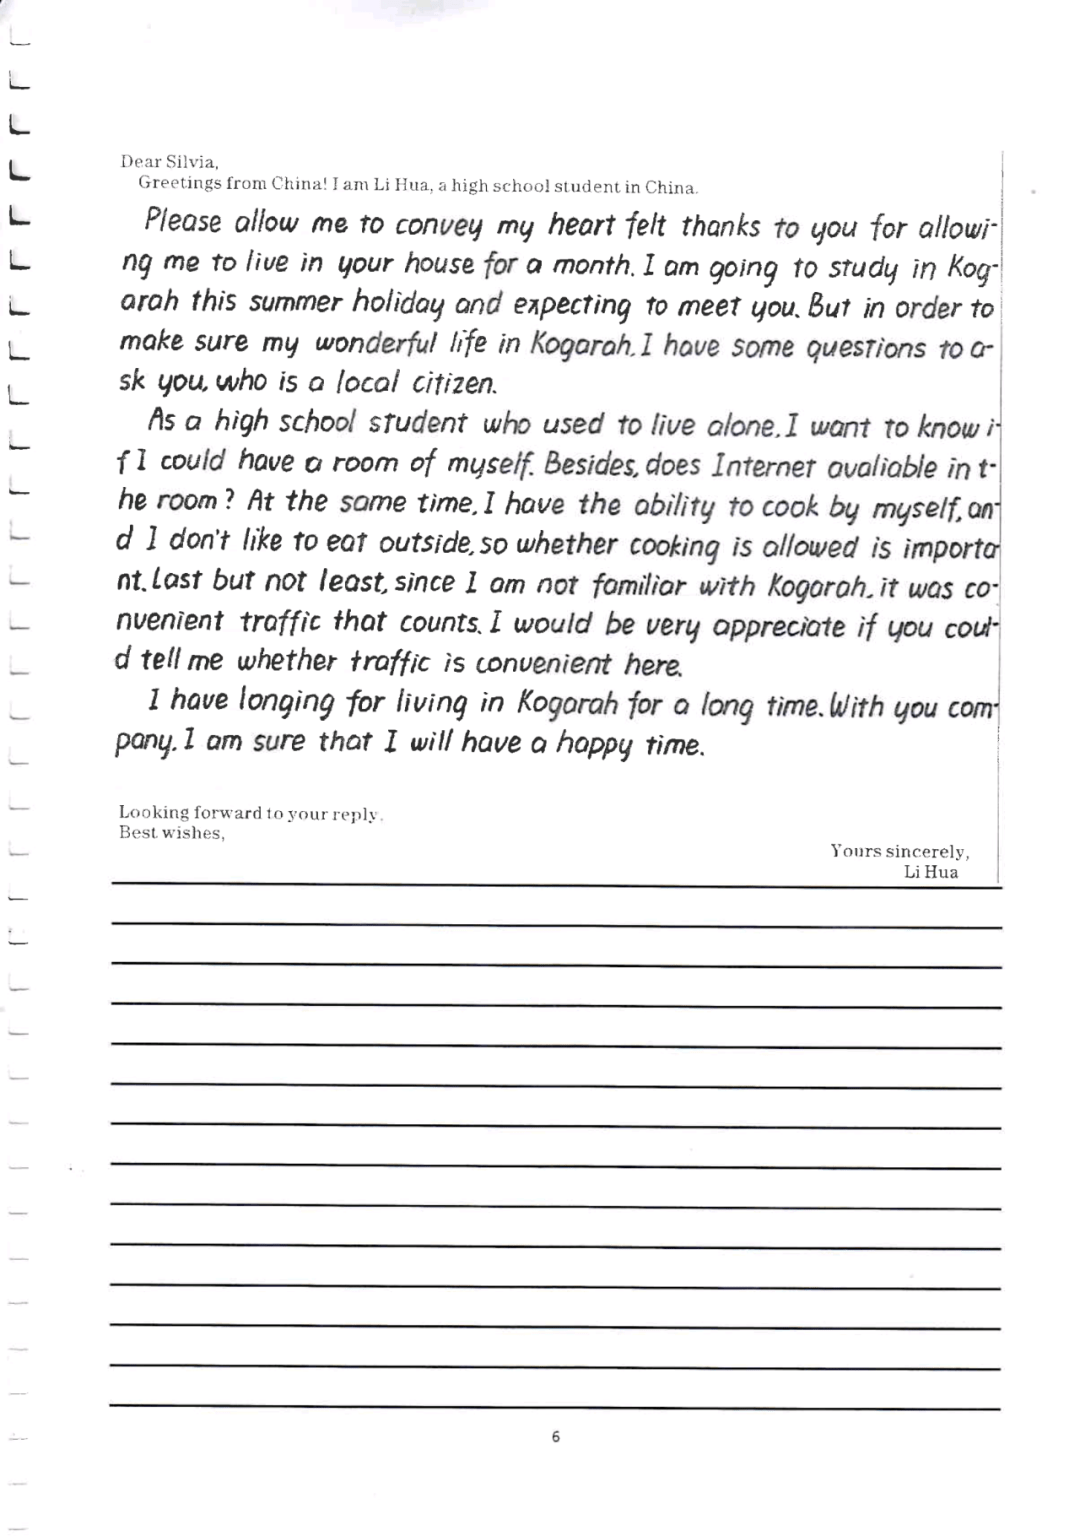 Dear Silvia,
Greetings from China! I am Li Hua, a high school student in China.
Please allow me to convey my heart felt thanks to you for allowi-
ng me to live in your house for a month. I am going to study in Kog-
arah this summer holiday and expecting to meet you. But in order to
make sure my wonderful life in Kogarah, I have some questions to a-
sk you, who is a local citizen.
As a high school student who used to live alone, I want to know i-
f I could have a room of myself. Besides, does Internet avaliable in t-
he room? At the same time, I have the ability to cook by myself, an-
d I don't like to eat outside, so whether cooking is allowed is importa-
nt. Last but not least, since I am not familiar with Kogarah, it was co-
nvenient traffic that counts. I would be very appreciate if you coul-
d tell me whether traffic is convenient here.
I have longing for living in Kogarah for a long time. With you com-
pany, I am sure that I will have a happy time.
Looking forward to your reply.
Best wishes,
Yours sincerely,
Li Hua
6